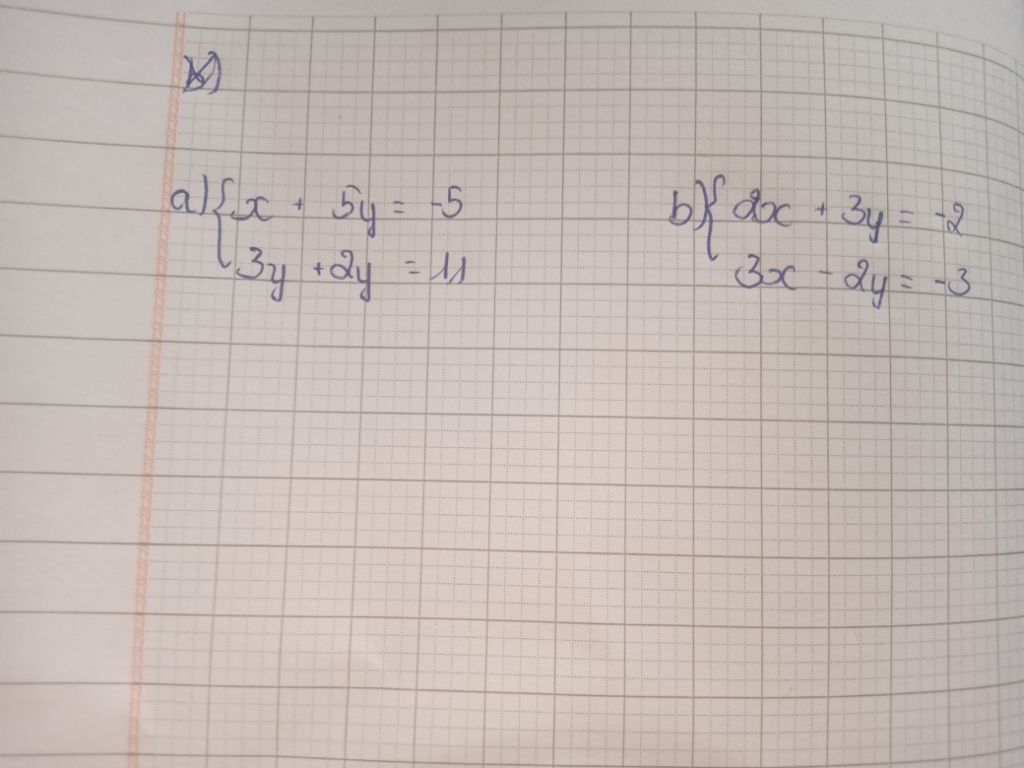 a) { x + 5y = -5
3y + 2y = 11
b) { 2x + 3y = -2
3x - 2y = -3